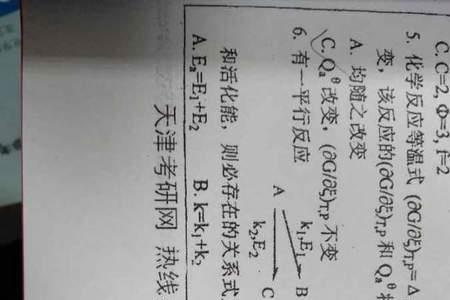 C. C=2, Φ=3, f=2
5. 化学反应等温式 (∂G/∂ξ)T,P=Δ
变，该反应的(∂G/∂ξ)T,P 和 Qa^θ
A. 均随之改变
C. Qa^θ 改变，(∂G/∂ξ)T,P 不变
6. 有一平行反应
A
k1,E1
B
k2,E2
C
和活化能，则必存在的关系式
A. Ea=E1+E2 B. k=k1+k2
天津考研网 热线